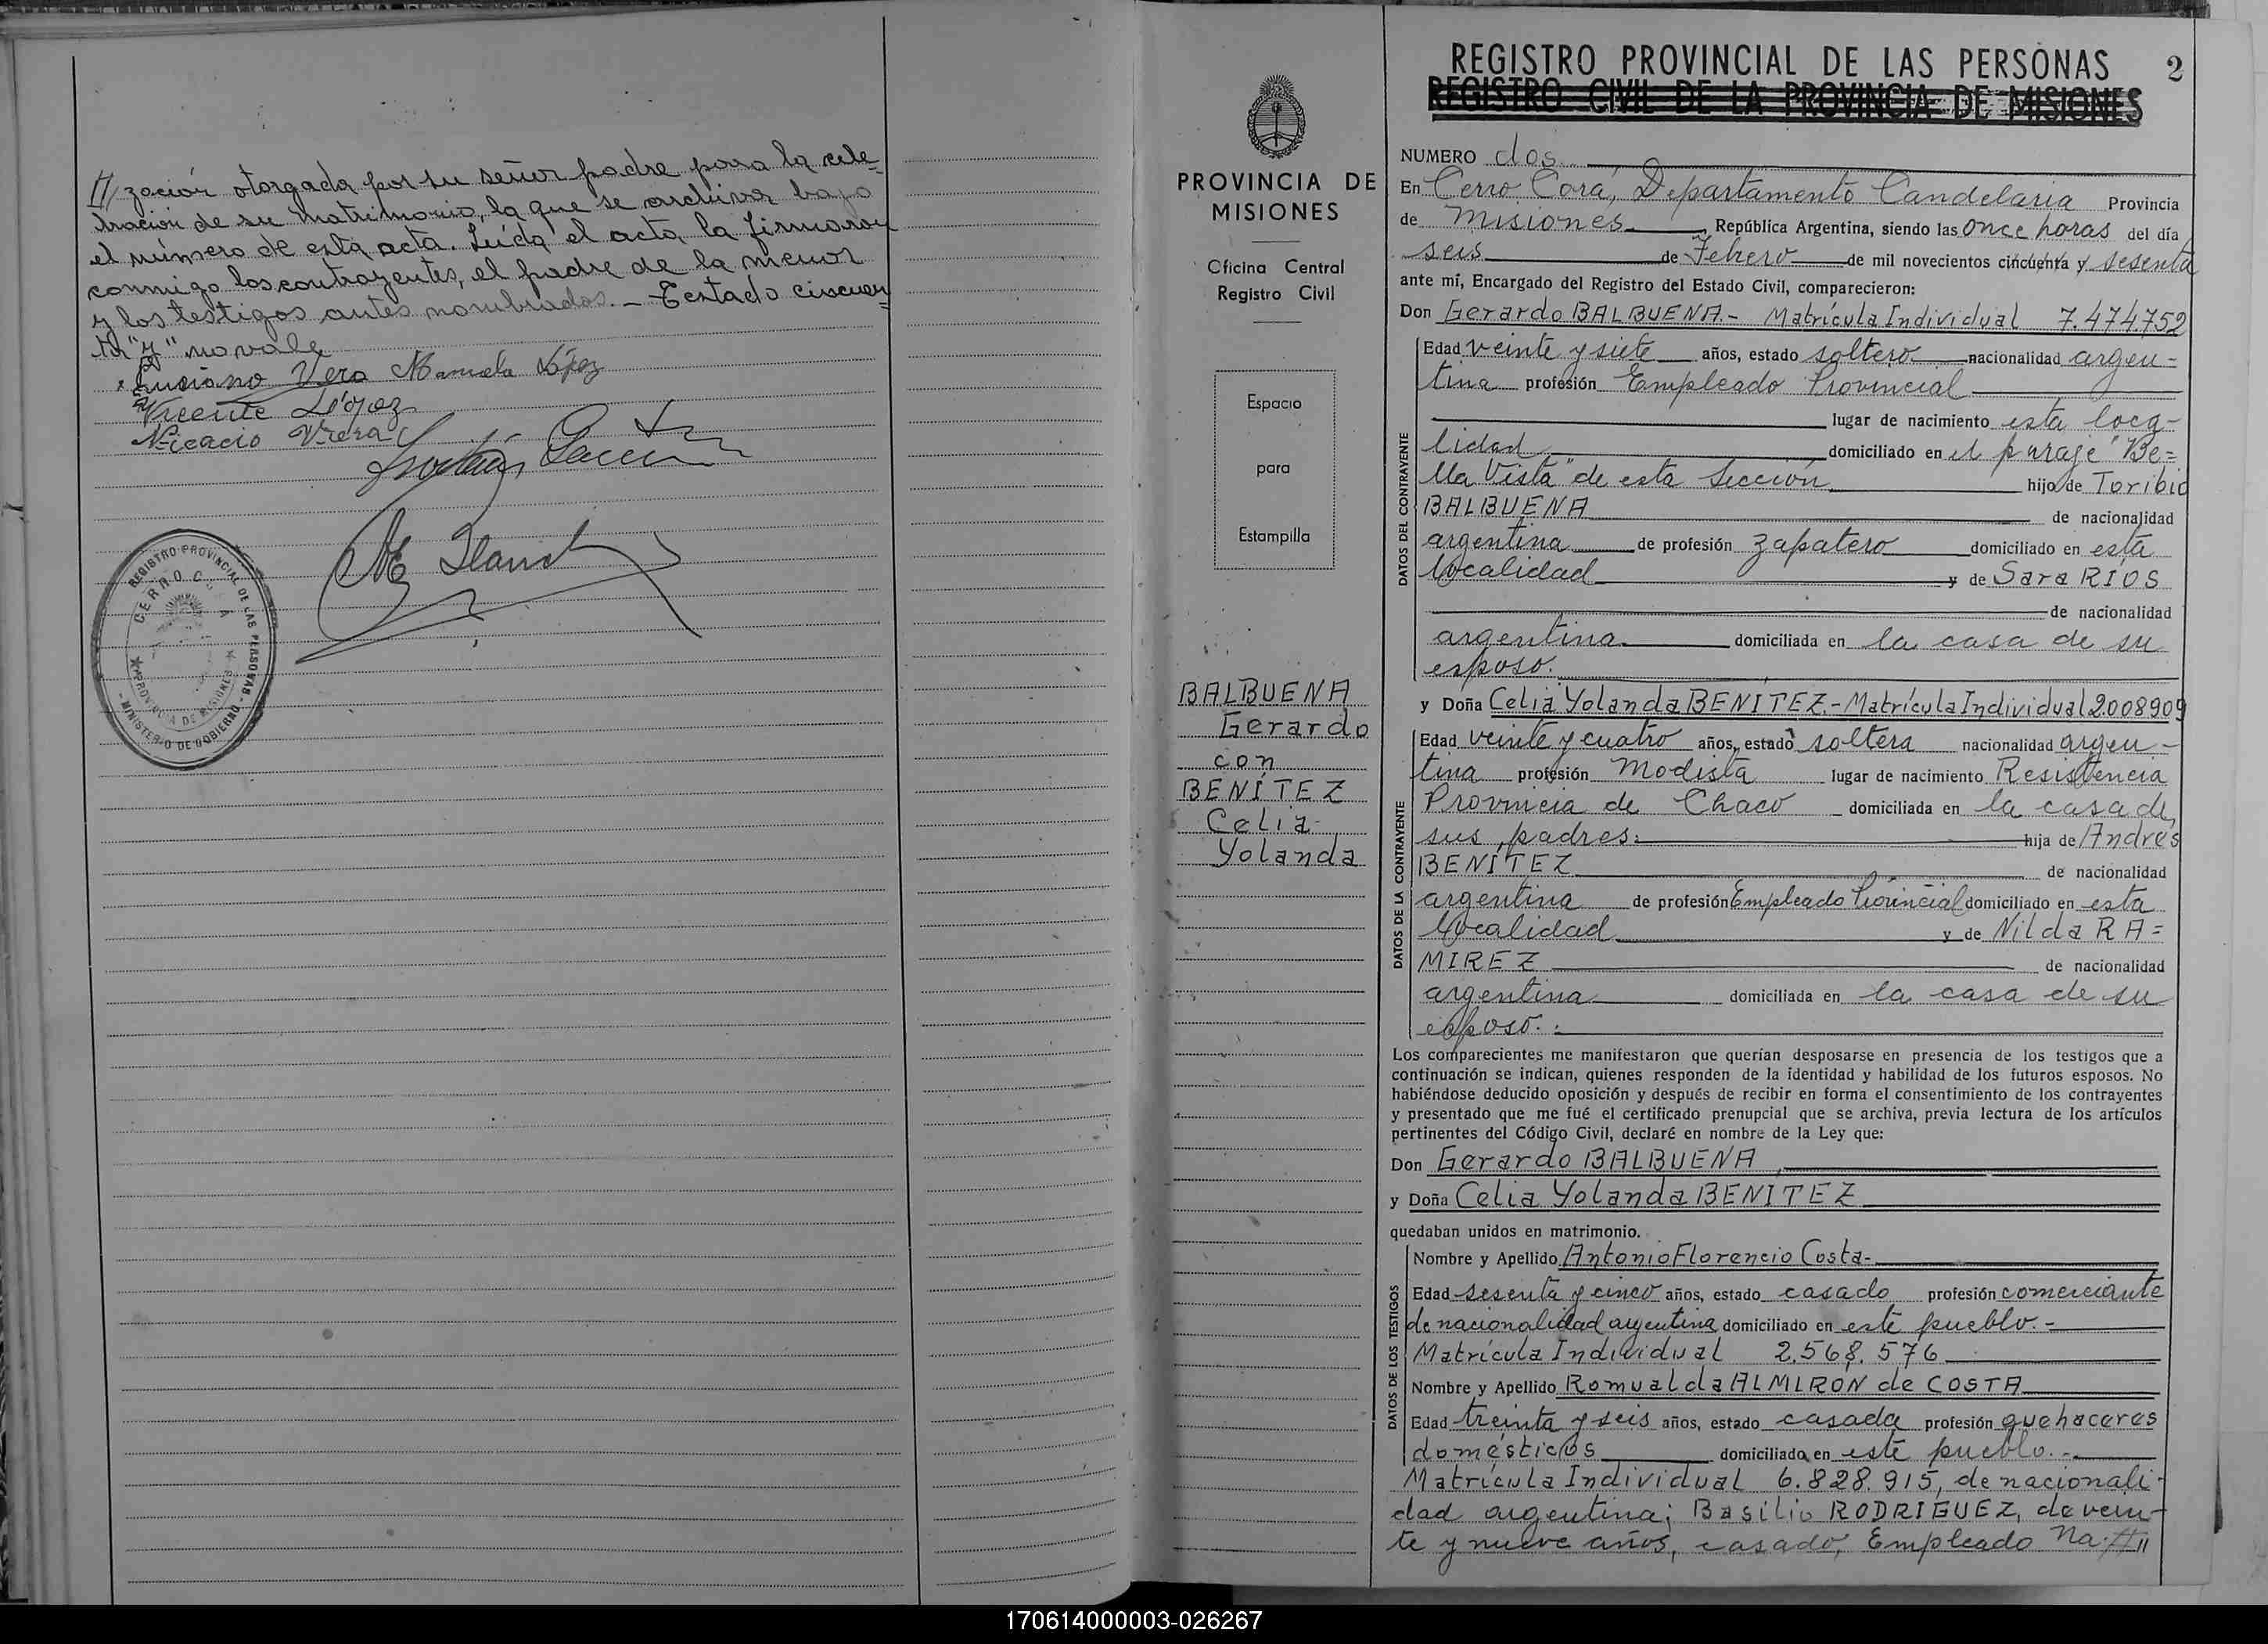 // zación otorgada por su señor padre para la cele=
bración de su matrimonio, la que se archiva bajo
el número de esta acta. Leída el acta, la firmaron
conmigo los contrayentes, el padre de la menor
y los testigos antes nombrados. - Testado cincuen=
ta "y" no vale
Luciano Vera Manuela López
Vicente López
Nicacio Vrera
REGISTRO PROVINCIAL DE LAS PERSONAS
CERRO C A
PROVINCIA DE MISIONES
MINISTERIO DE GOBIERNO
PROVINCIA DE
MISIONES
Oficina Central
Registro Civil
Espacio
para
Estampilla
BALBUENA
Gerardo
con
BENÍTEZ
Celia
Yolanda
REGISTRO PROVINCIAL DE LAS PERSONAS 2
REGISTRO CIVIL DE LA PROVINCIA DE MISIONES
NUMERO dos
En Cerro Corá, Departamento Candelaria Provincia
de Misiones República Argentina, siendo las once horas del día
seis de Febrero de mil novecientos cincuenta y sesenta
ante mí, Encargado del Registro del Estado Civil, comparecieron:
Don Gerardo BALBUENA.- Matrícula Individual 7.474.752
DATOS DEL CONTRAYENTE
Edad veinte y siete años, estado soltero nacionalidad argen=
tina profesión Empleado Provincial
lugar de nacimiento esta loca-
lidad domiciliado en el paraje "Be=
lla Vista" de esta Sección hijo de Toribio
BALBUENA de nacionalidad
argentina de profesión zapatero domiciliado en esta
localidad y de Sara RÍOS
de nacionalidad
argentina domiciliada en la casa de su
esposo.
y Doña Celia Yolanda BENITEZ.-Matrícula Individual 2.008.909
DATOS DE LA CONTRAYENTE
Edad veinte y cuatro años, estado soltera nacionalidad argen-
tina profesión Modista lugar de nacimiento Resistencia
Provincia de Chaco domiciliada en la casa de
sus padres hija de Andrés
BENÍTEZ de nacionalidad
argentina de profesión Empleado Provincial domiciliado en esta
localidad y de Nilda RA=
MIREZ de nacionalidad
argentina domiciliada en la casa de su
esposo.
Los comparecientes me manifestaron que querían desposarse en presencia de los testigos que a
continuación se indican, quienes responden de la identidad y habilidad de los futuros esposos. No
habiéndose deducido oposición y después de recibir en forma el consentimiento de los contrayentes
y presentado que me fué el certificado prenupcial que se archiva, previa lectura de los artículos
pertinentes del Código Civil, declaré en nombre de la Ley que:
Don Gerardo BALBUENA
y Doña Celia Yolanda BENITEZ
quedaban unidos en matrimonio.
DATOS DE LOS TESTIGOS
Nombre y Apellido Antonio Florencio Costa-
Edad sesenta y cinco años, estado casado profesión comerciante
de nacionalidad argentina domiciliado en este pueblo.-
Matrícula Individual 2.568.576
Nombre y Apellido Romualda ALMIRON de COSTA
Edad treinta y seis años, estado casada profesión quehaceres
domésticos domiciliada en este pueblo.-
Matrícula Individual 6.828.915, de nacionali-
dad argentina; Basilio RODRIGUEZ, de vein-
te y nueve años, casado, Empleado Na-//
170614000003-026267